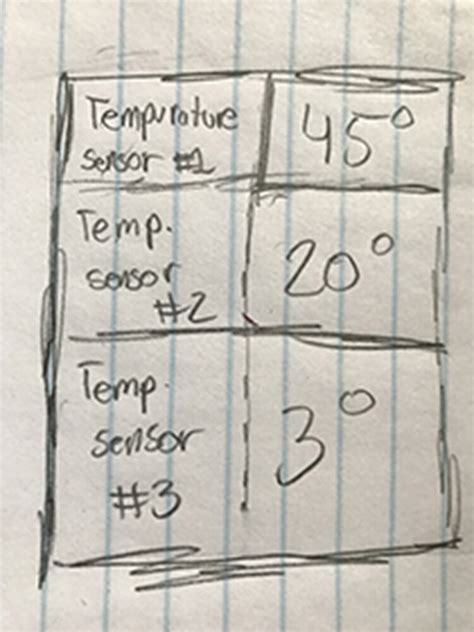 Tempurature 45°
sensor #1
Temp. 20°
sensor
#2
Temp. 3°
sensor
#3